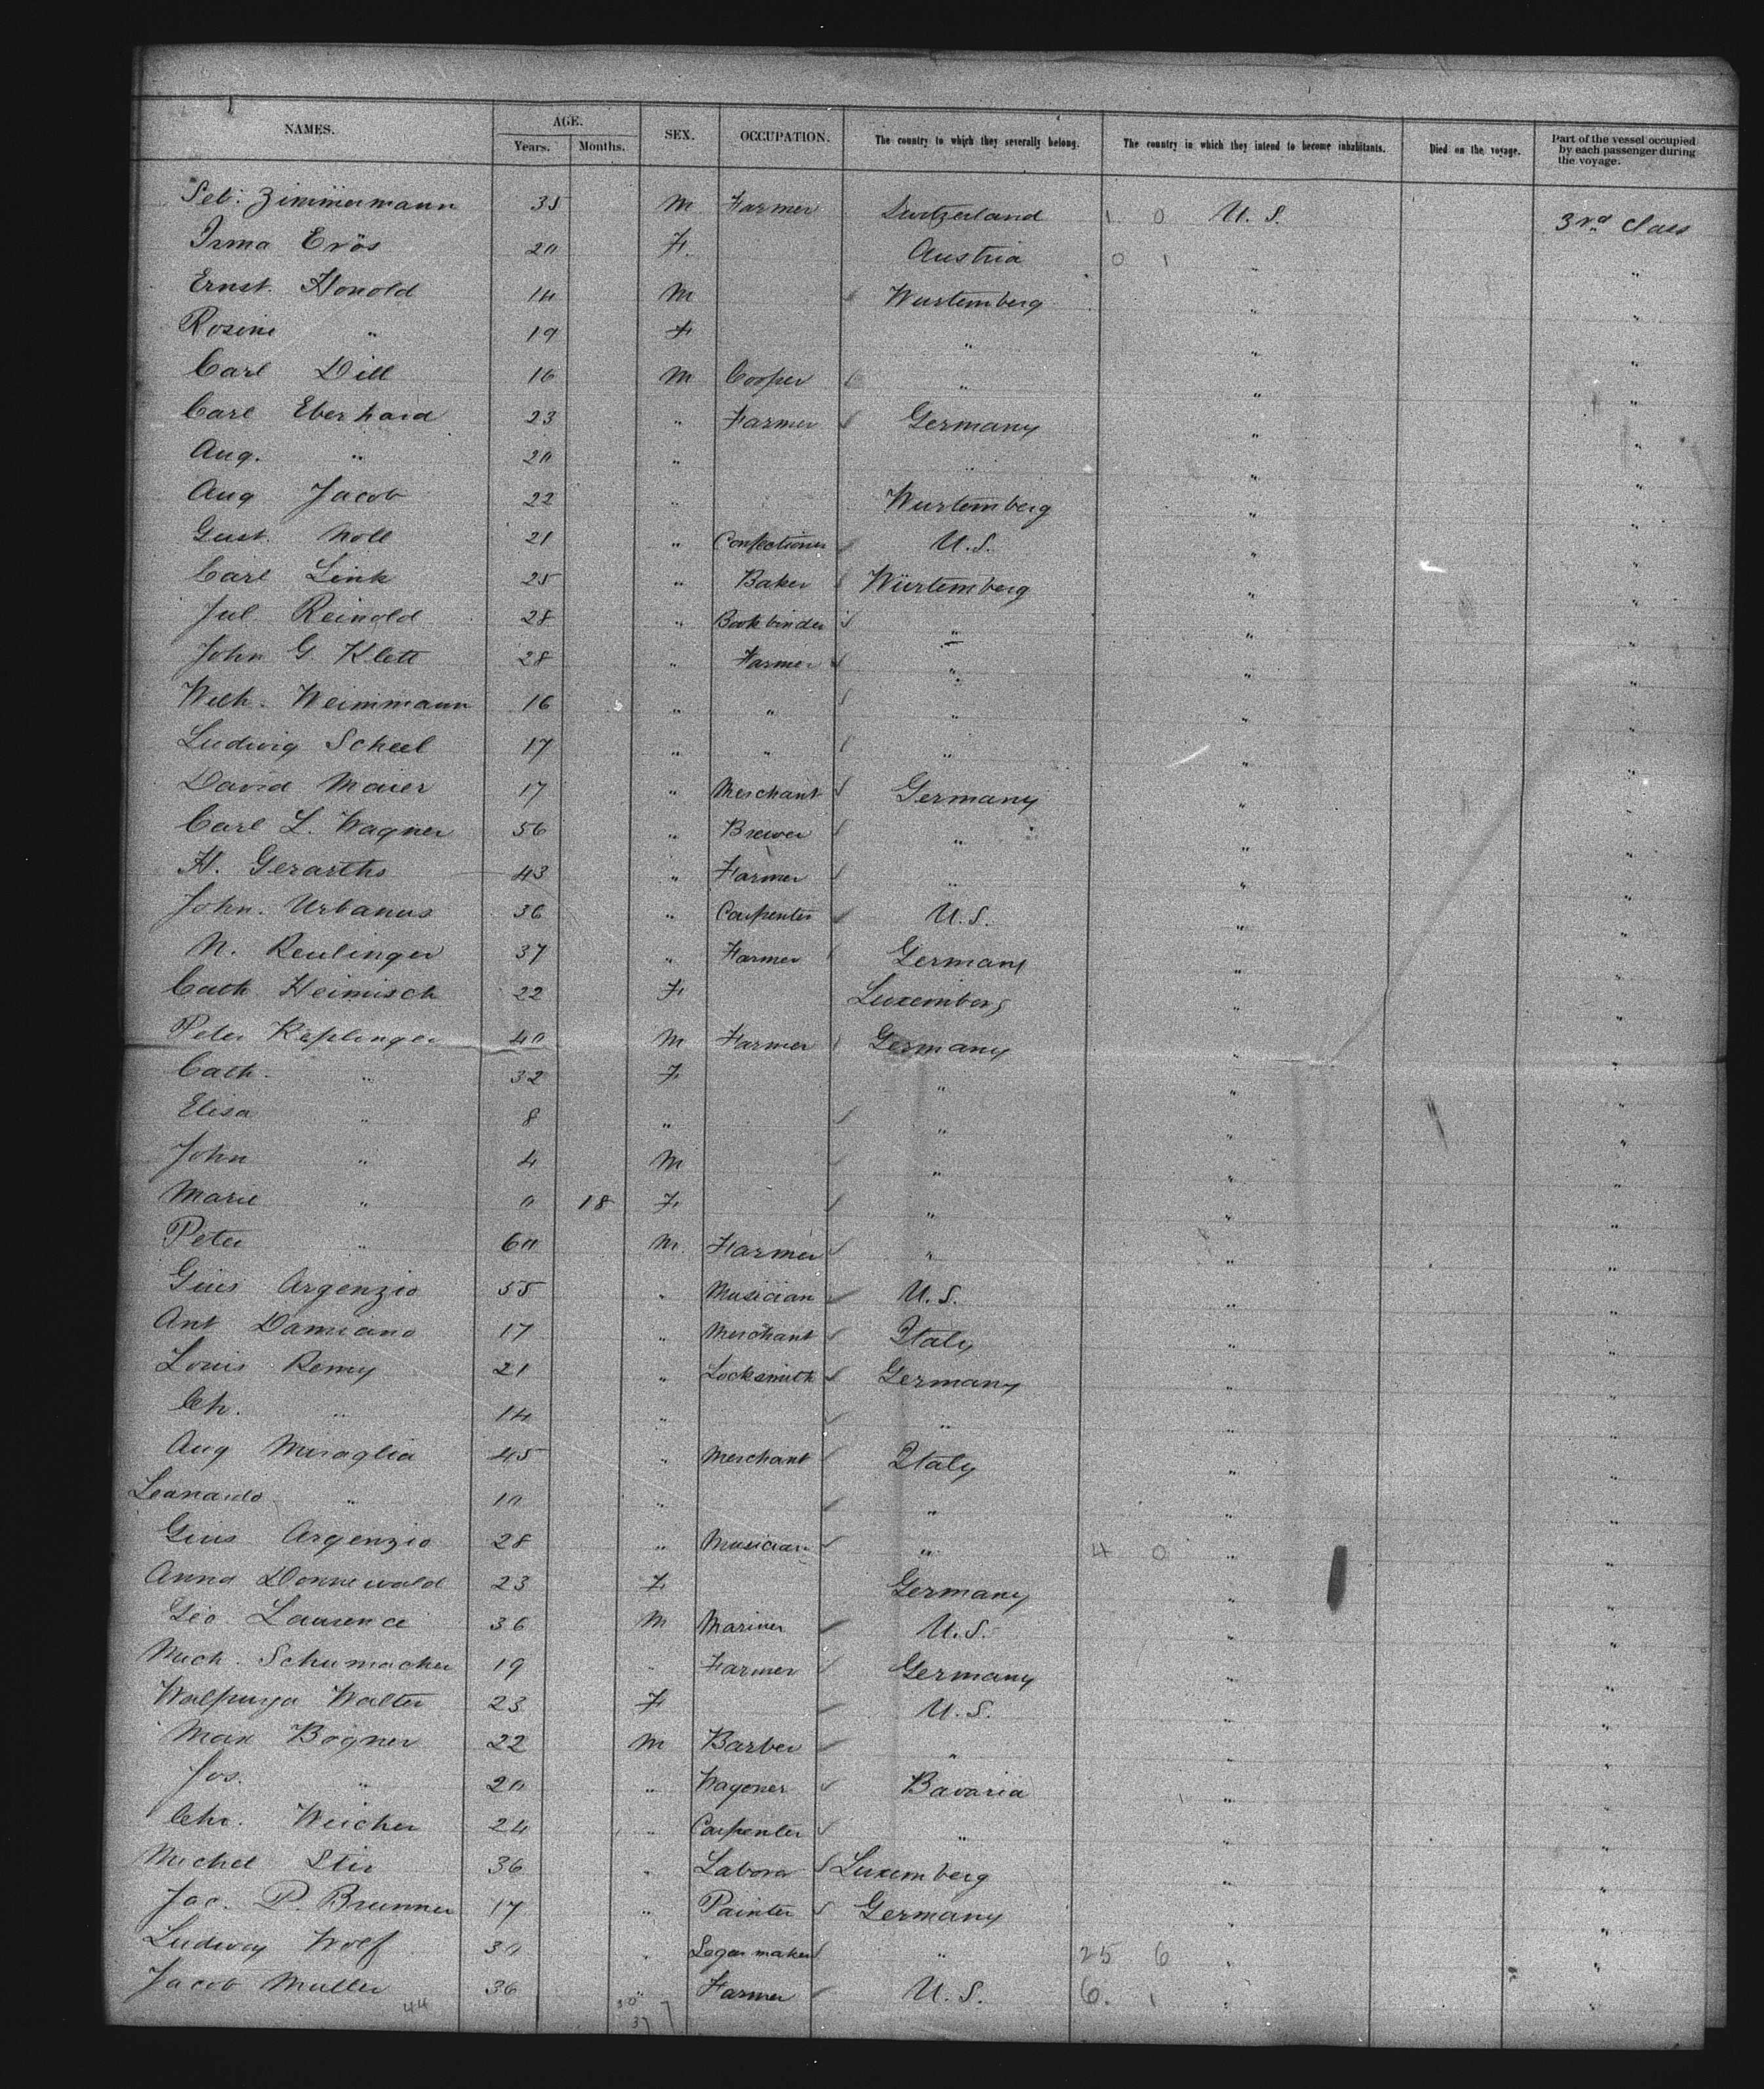 NAMES. AGE. SEX. OCCUPATION. The country to which they severally belong. The country in which they intend to become inhabitants. Died on the voyage. Part of the vessel occupied by each passenger during the voyage.
Years. Months.
Seb: Zimmermann 35 M Farmer Switzerland 1 0 U.S. 3rd Class
Irma Erös 20 F. Austria 0 1 " "
Ernst. Honold 14 M Wurtemberg " "
Rosine " 19 F " " "
Carl Dill 16 M Cooper " " "
Carl Eberhard 23 " Farmer Germany " "
Aug. " 20 " " " "
Aug Jacob 22 " Wurtemberg " "
Gust. Noll 21 " Confectioner U.S. " "
Carl Link 25 " Baker Würtemberg " "
Jul. Reinold 28 " Bookbinder " " "
John G. Klett 28 " Farmer " " "
Wilh. Weimmann 16 " " " " "
Ludwig Scheel 17 " " " " "
David Maier 17 " Merchant Germany " "
Carl L. Wagner 56 " Brewer " " "
H. Gerarths 43 " Farmer " " "
John. Urbanus 36 " Carpenter U.S. " "
N. Reulinger 37 " Farmer Germany " "
Cath Heimisch 22 F Luxemborg " "
Peter Keplinger 40 M Farmer Germany " "
Cath. " 32 F " " "
Elisa " 8 " " " "
John " 4 M " " "
Marie " 0 18 F " " "
Peter " 60 M. Farmer " " "
Gius Argenzio 55 " Musician U.S. " "
Ant Damiano 17 " Merchant Italy " "
Louis Remy 21 " Locksmith Germany " "
Ch. " 14 " " " "
Aug Miraglia 45 " Merchant Italy " "
Leonardo " 10 " " " "
Gius Argenzio 28 " Musician " 4 0 " "
Anna Donnewald 23 F Germany " "
Geo. Laurence 36 M Mariner U.S. " "
Mich. Schumacher 19 " Farmer Germany " "
Walpurga Walter 23 F U.S. " "
Max Bogner 22 M Barber " " "
Jos. " 20 " Wagoner Bavaria " "
Chr. Weicher 24 " Carpenter " " "
Michel Stir 36 " Labora Luxemberg " "
Jac. P. Brunner 17 " Painter Germany " "
Ludwig Wolf 30 " Segar maker " 25 6 " "
Jacob Muller 36 " Farmer U.S. 6. 1 " "
44 30 7
37